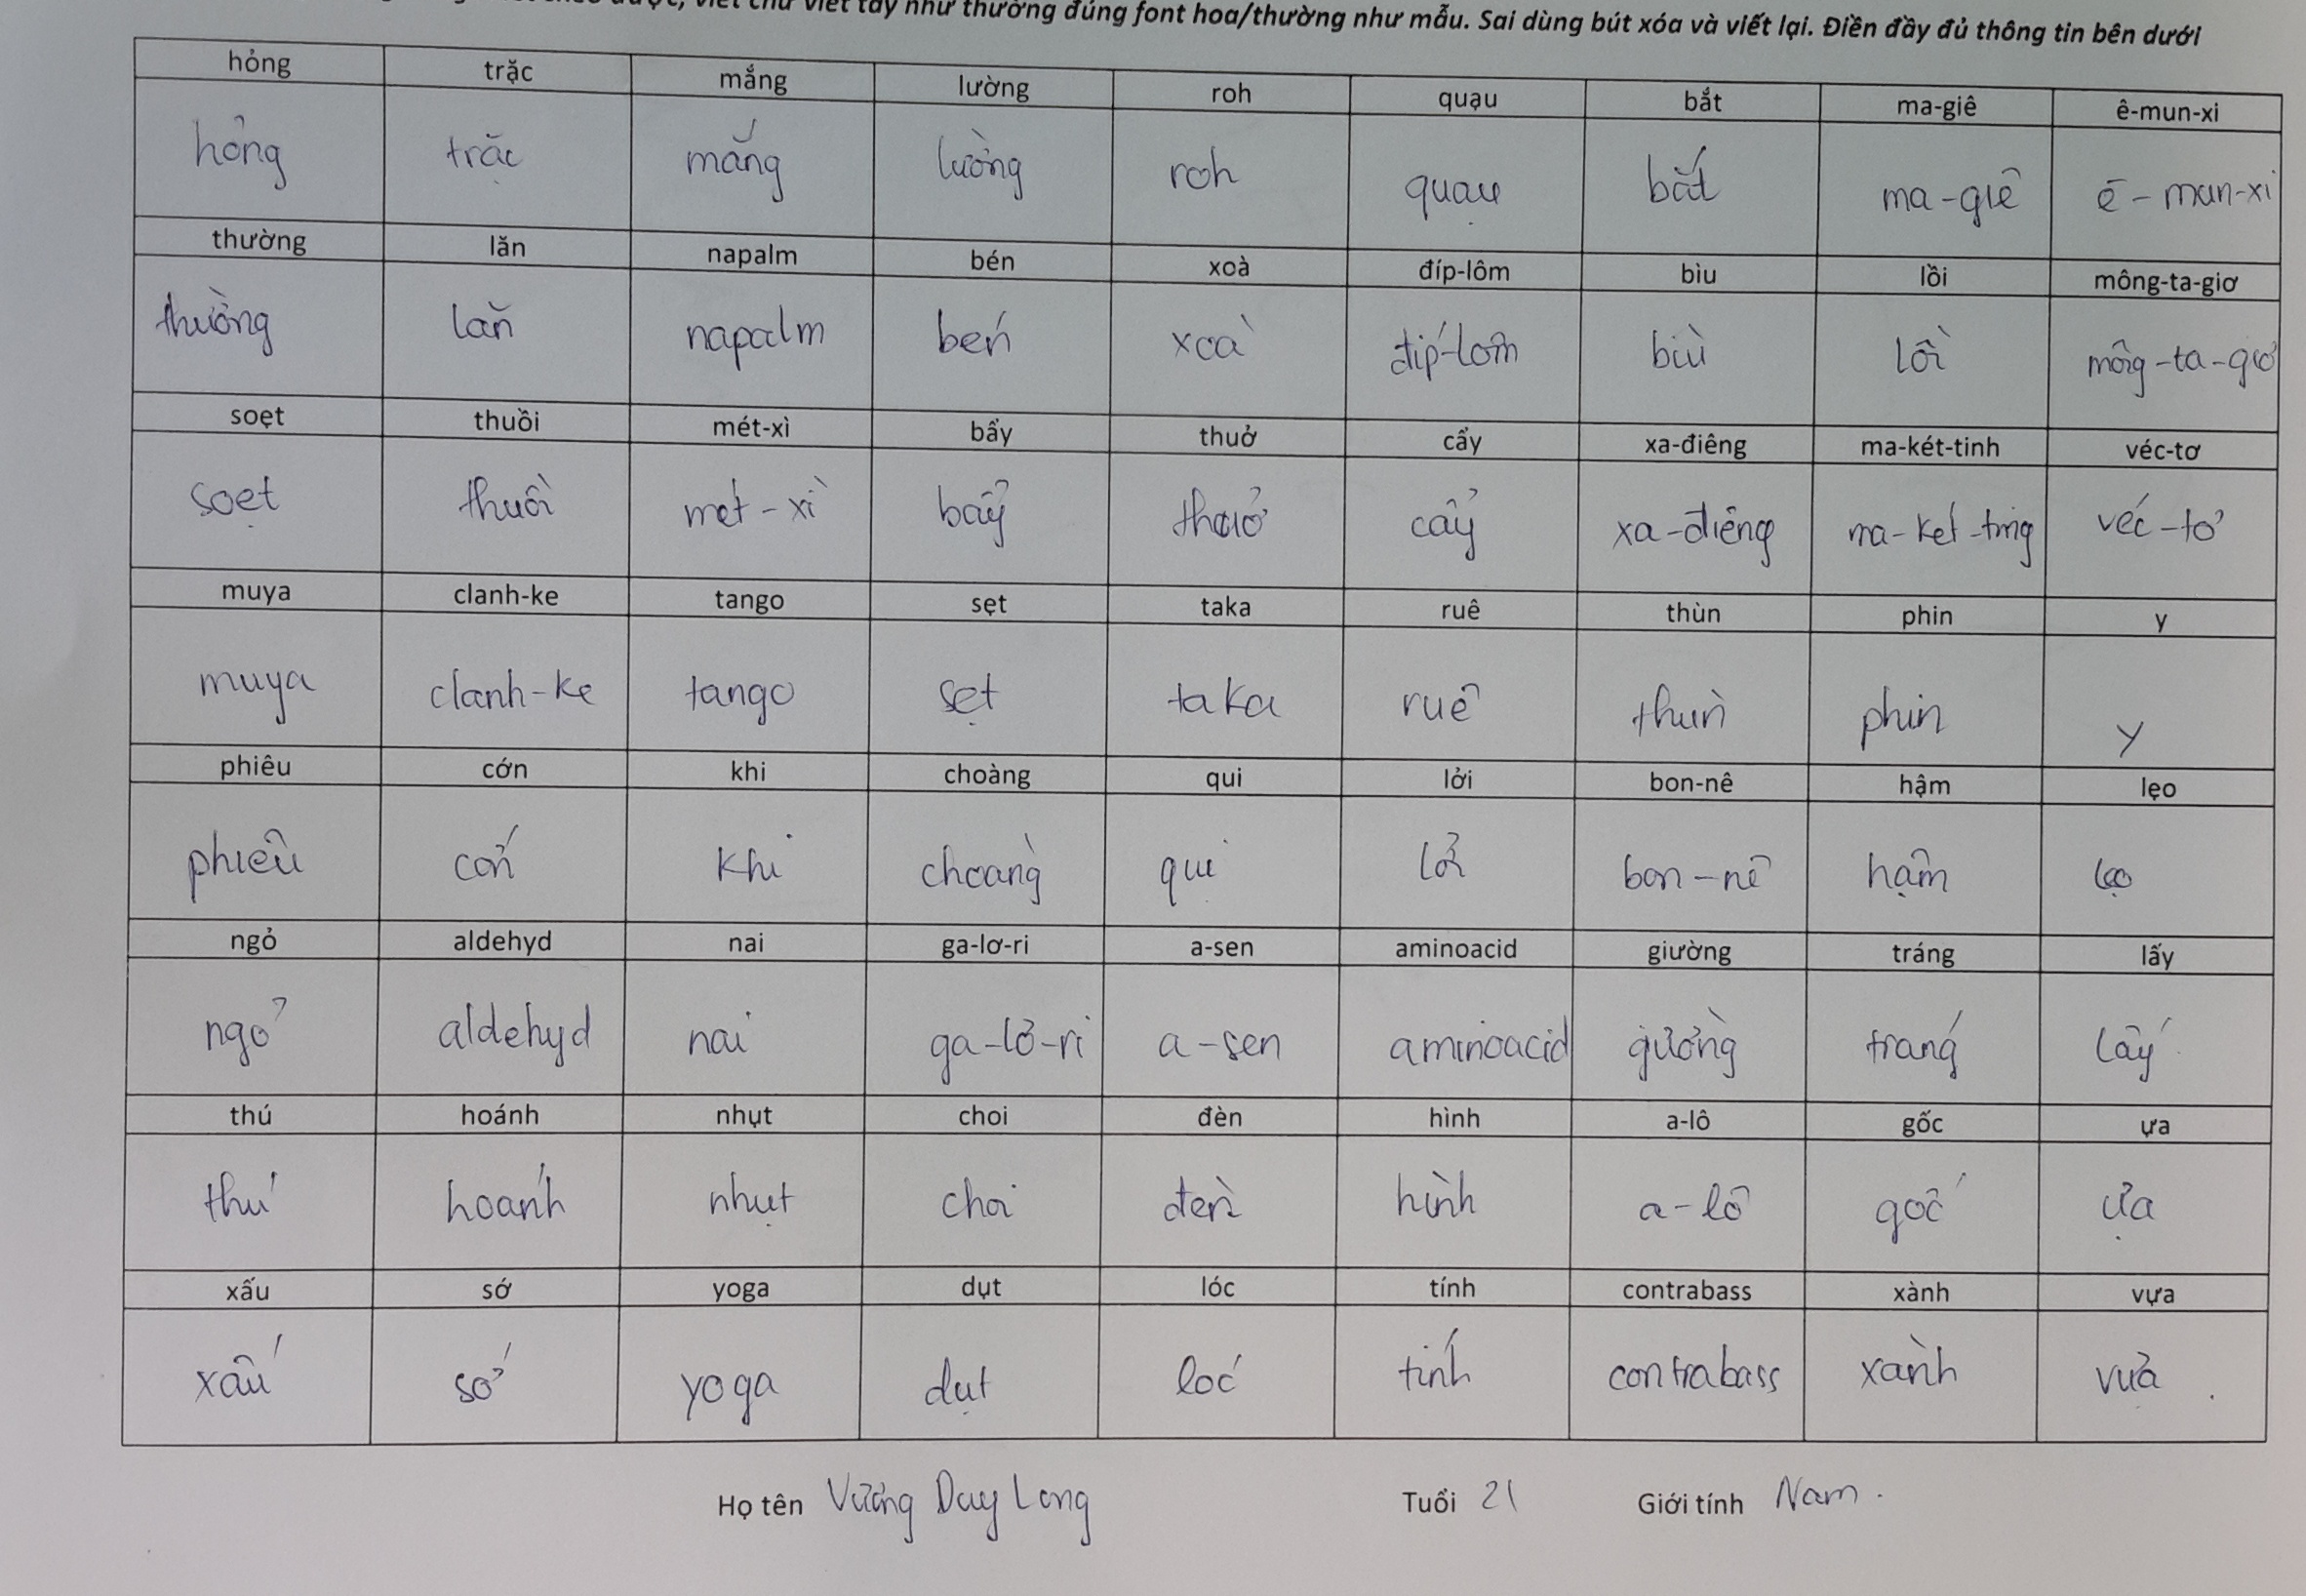 viết chữ viết tay như thường đúng font hoa/thường như mẫu. Sai dùng bút xóa và viết lại. Điền đầy đủ thông tin bên dưới
hỏng trặc mắng lường roh quạu bắt ma-giê ê-mun-xi
hỏng trặc mắng lường roh quạu bắt ma-giê ê-mun-xi
thường lăn napalm bén xoà đíp-lôm bìu lồi mông-ta-giơ
thường lăn napalm bén xoà đíp-lôm bìu lồi mông-ta-giơ
soẹt thuồi mét-xì bẩy thuở cẩy xa-điêng ma-két-tinh véc-tơ
soẹt thuồi mét-xì bẩy thuở cẩy xa-điêng ma-két-ting véc-tơ
muya clanh-ke tango sẹt taka ruê thùn phin y
muya clanh-ke tango sẹt taka ruê thùn phin y
phiêu cớn khi choàng qui lởi bon-nê hậm lẹo
phiêu cớn khi choàng qui lởi bon-nê hậm lẹo
ngỏ aldehyd nai ga-lơ-ri a-sen aminoacid giường tráng lấy
ngỏ aldehyd nai ga-lơ-ri a-sen aminoacid giường tráng lấy
thú hoánh nhụt choi đèn hình a-lô gốc ựa
thú hoánh nhụt choi đèn hình a-lô gốc ựa
xấu sớ yoga dụt lóc tính contrabass xành vựa
xấu sớ yoga dụt lóc tính contrabass xành vựa .
Họ tên Vương Duy Long Tuổi 21 Giới tính Nam.